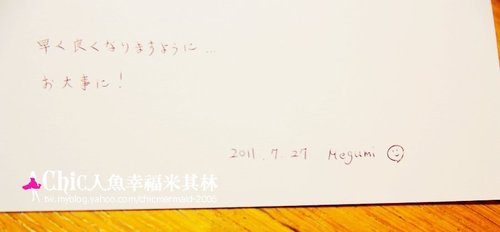 早く良くなりますように...
お大事に!
2011.7.27 Megumi
Chic人魚幸福米其林
tw.myblog.yahoo.com/chicmermaid-2006